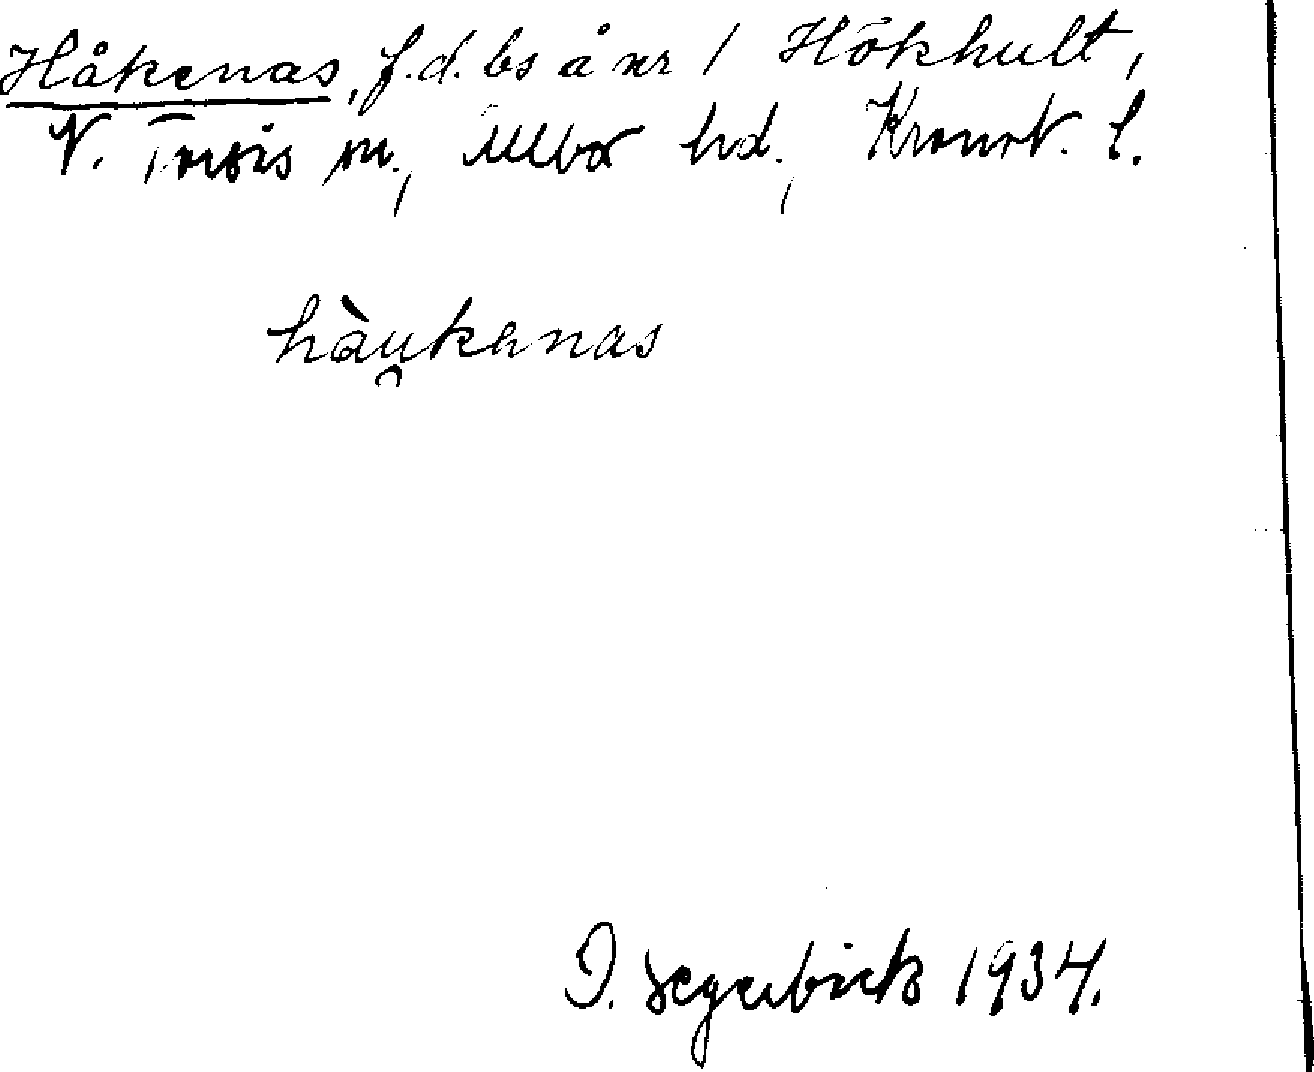 Håkenas, f.d. bs å nr 1 Hökhult,
V. Torsås sn., Allbo hd., Kronob. l.
hàu̯kenas
I. Segerbäck 1934.